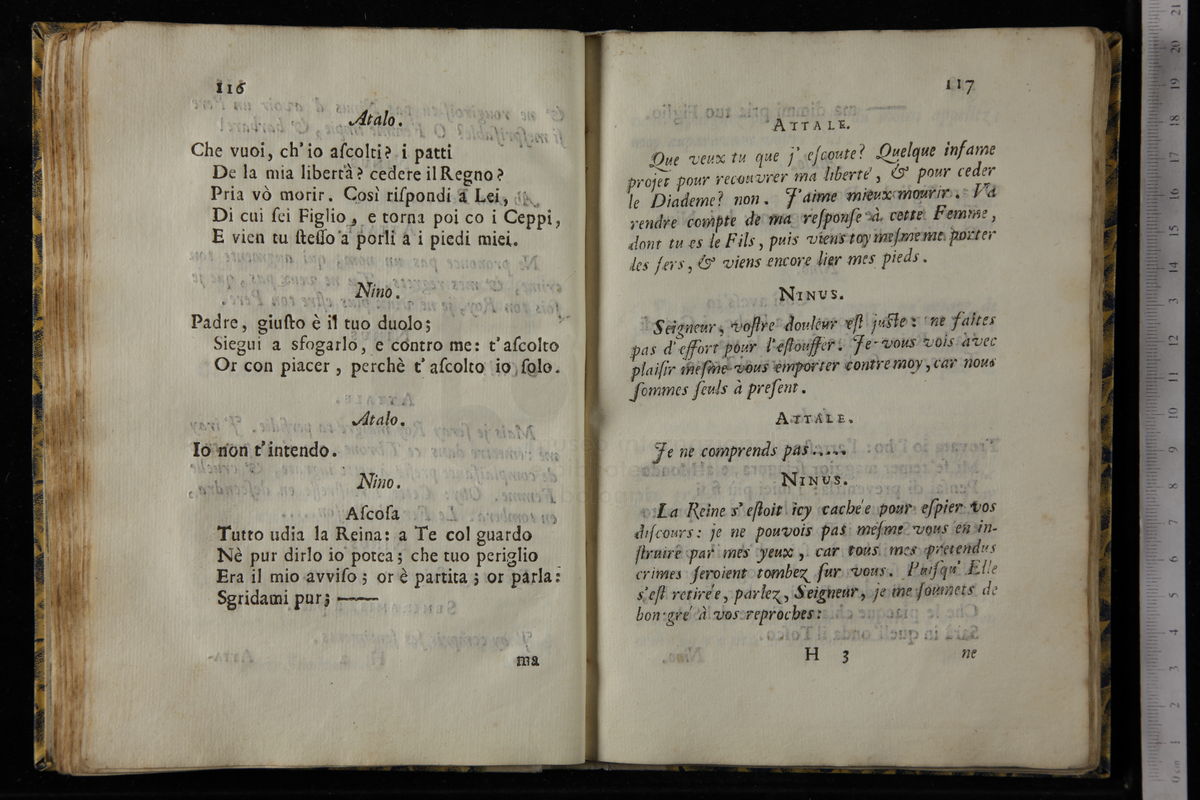 116
Atalo.
Che vuoi, ch' io aſcolti? i patti
De la mia libertà? cedere il Regno?
Pria vò morir. Così riſpondi a Lei,
Di cui ſei Figlio, e torna poi co i Ceppi,
E vien tu ſteſſo a porli a i piedi miei.
Nino.
Padre, giuſto è il tuo duolo;
Siegui a sfogarlo, e contro me: t' aſcolto
Or con piacer, perchè t' aſcolto io ſolo.
Atalo.
Io non t' intendo.
Nino.
Aſcoſa
Tutto udia la Reina: a Te col guardo
Nè pur dirlo io potea; che tuo periglio
Era il mio avviſo; or è partita; or parla:
Sgridami pur; ——
ma
117
ATTALE.
Que veux tu que j' eſcoute? Quelque infame
projet pour recouvrer ma liberté, & pour ceder
le Diademe? non. J'aime mieux mourir. Va
rendre compte de ma reſponſe à cette Femme,
dont tu es le Fils, puis viens toy meſme me porter
les fers, & viens encore lier mes pieds.
NINUS.
Seigneur, voſtre douleur eſt juſte: ne faites
pas d' effort pour l' eſtouffer. Je vous vois avec
plaiſir meſme vous emporter contre moy, car nous
ſommes ſeuls à preſent.
ATTALE.
Je ne comprends pas.....
NINUS.
La Reine s' eſtoit icy cachée pour eſpier vos
diſcours: je ne pouvois pas meſme vous en in-
ſtruire par mes yeux, car tous mes pretendus
crimes ſeroient tombez ſur vous. Puiſqu' Elle
s'eſt retirée, parlez, Seigneur, je me ſoumets de
bon-gré à vos reproches:
H 3
ne